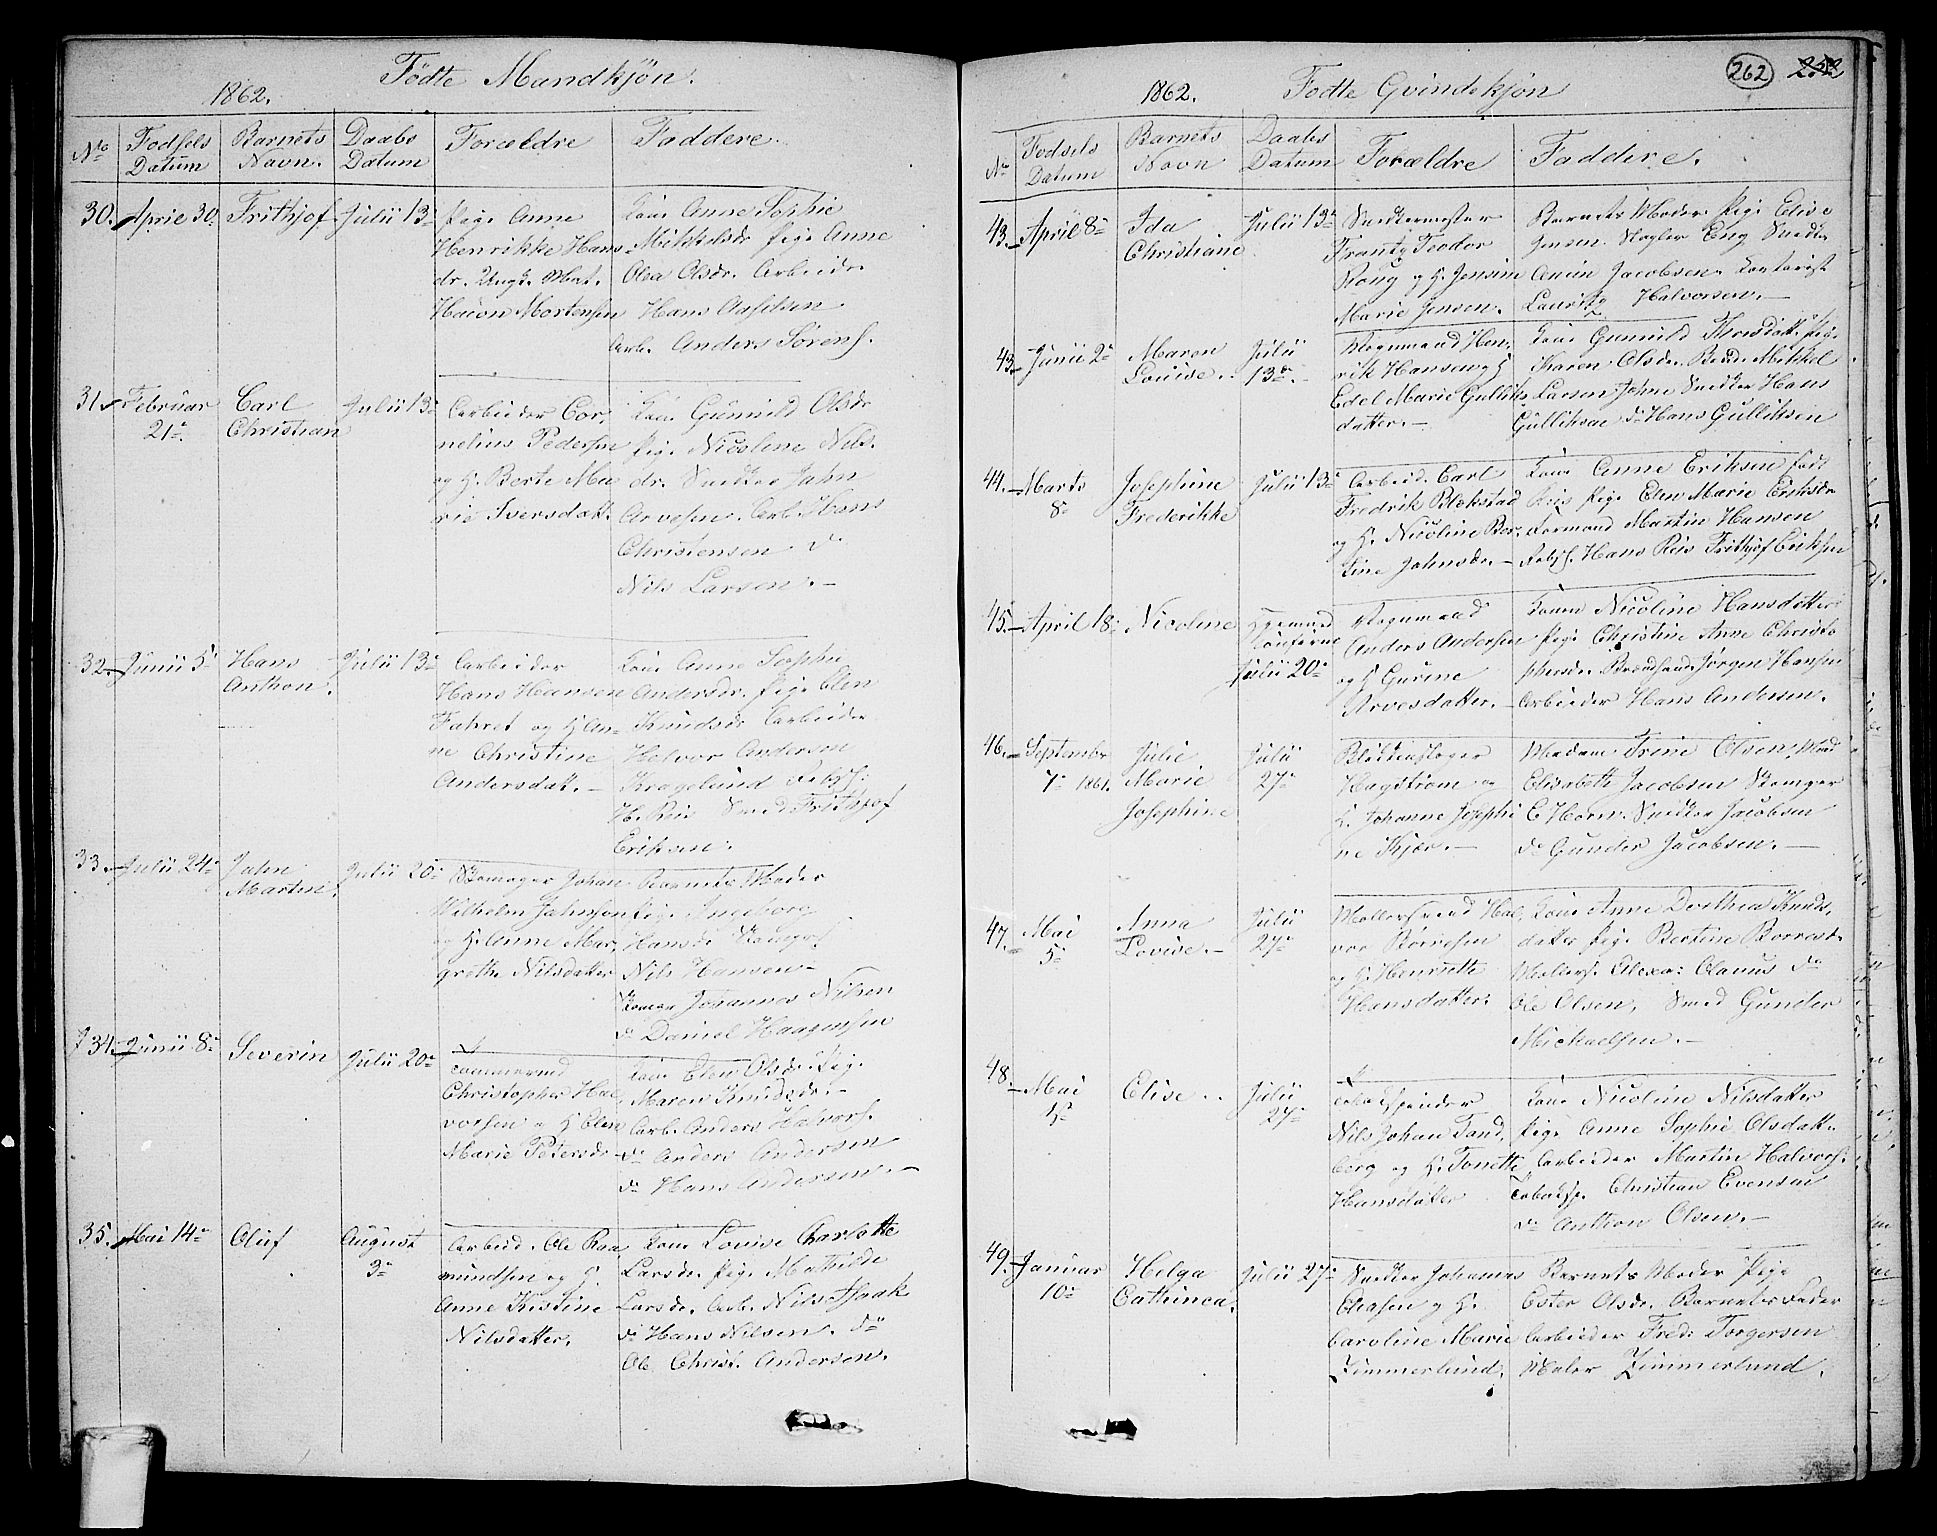 Fødte Mandkjøn.
1862.
No
Fødsels Datum
Barnets Navn.
Daabs Datum
Forældre
Faddere.
30. Aprie 30.
Frithjof
Julii 13de
Pige Anne
Henrikke Hans-
dr. Ungk. Mat.
Hacon Mortensen
Kone Anne Sophie
Mikkelsdr Pige Anne
Olea Olsdr. Arbeider
Hans Axselsen
Arb. Anders Sørens.
31. Februar
21de
Carl
Christian
Julii 13de
Arbeider Cor-
nelius Pedersen
og H. Berte Ma
rie Iversdatt.
Kone Gunnild Olsdr
Pige Nicoline Nils.
dr. Snedker Jahn
Arvesen. Arb. Hans
Christensen do
Nils Larsen.-
32. Junii 5te
Hans
Anthon.
Julii 13de
Arbeider
Hans Hansen
Fahret og H An-
ne Christine
Andersdatt.-
Kone Anne Sophi
Andersdr. Pige Elen
Knudsdr Arbeider
Helvor Andersen
Kragelund
H. Reis Smed Frithjof
Eriksen.
33. Julii 24de
Jahn
Martin.
Julii 20de
Skomager Johan
Wilhelm Jahnsen
og H. Anne Mar-
grethe Nilsdatter
Barnets Moder
Pige Ingeborg
Hansdr Skomgrs.
Nils Hansen-
Skomgr Johannes Nilsen
do Daniel Haagensen
34. Junii 8de
Severin
Julii 20de
Tømmermd
Christopher Hal
vorsen og H Elen
Marie Petersdr
Kone Elen Olsdr. Pige
Maren Knudsdr.-
Arb. Anders Halvors.
do Anders Andersen
do Hans Andersen.-
35. Mai 14de
Oluf
August
3de
Arbeid. Ole Raa
mundsen og H.
Anne Kistine
Nilsdatter.
Kone Lovise Charlotte
Larsdr. Pige Mathilde
Larsdr. Arb. Nils Isaak
do Hans Nilsen. do
Ole Christ. Andersen.
262
1862.
Fødte Qvindekjøn
No
Fødsels Datum
Barnets Navn
Daabs Datum
Forældre
Faddere.
43. April 8de
Ida
Christiane
Julii 13de
Snedkermester
Frantz Teodor
Roug og H. Jensine
Marie Jensen.
Barnets Moder Pige Elise
Jensen. Eng Snedker
Jacobsen. Kontorist
Lauritz Halvorsen.-
43. Junii 2de
Maren
Louise.
Julii
13de.
Vognmand Hen-
rik Hansen og H
Edel Marie Gulliks
datter.-
Kone Gunnild Thresdatt. Pige
Karen Olsdr. Mikkel
Larsen Johne Snedker Hans
Gulliksen do Hans Gulliksen
44. Marts
8de
Josephine
Frederikke
Julii 13de
Arbeid. Carl
Fredrik Blekstad
og H. Nicoline Ber-
tine Jahnsdr.-
Kone Anne Eriksen født
Reis Pige Elen Marie Eriksdr
Formand Martin Hansen
Hans Reis Frithjof Eriksen
45. April 18de
Nicoline
Julii 20de
Vognmand
Anders Andersen
og H Gurine
Arvesdatter.-
Konen Nicoline Hansdatter
Pige Christine Anne Christo
phersdr. Jørgen Hansen
Arbeider Hans Andersen.
46. September
7de 1861.
Julie
Marie
Josephine
Julii
27de
Blikkenslager
Hagstrøm og
H. Johanne Josephi
ne Kjær.-
Madame Trine Olsen, Mad
Elisabeth Jacobsen Skomger
C Horn. Snedker Jacobsen
do Gunder Jacobsen.-
47. Mai
5de
Anna
Lovise.-
Julii
27de
Møllersvend Hal,
vor Børresen
og H. Henriette
Hansdatter.
Kone Anne Dorthea Knuds,
datter Pige Bertine Borresd.
Møllers. Alexa: Olanus do
Ole Olsen, Smed Gunder
Michaelsen.-
48. Mai
1ste
Elise.
Julii
27de
Tobakspinder
Nils Johan Tand,
berg og H. Tonette
Hansdatter
Kone Nicoline Nilsdatter
Pige Anne Sophie Olsdatt.
Arbeider Martin Halvors.
Tobaksp. Christian Evensen
do Anthon Olsen.-
49. Januar
10de
Helga
Cathinca.
Julii 27de
Snedker Johannes
Eliasen og H.
Caroline Marie
Zimmerlund.
Barnets Moder Pige
Ester Olsdr. Barnets Fader
Arbeider Fred: Torgersen
Maler Zimmerlund.